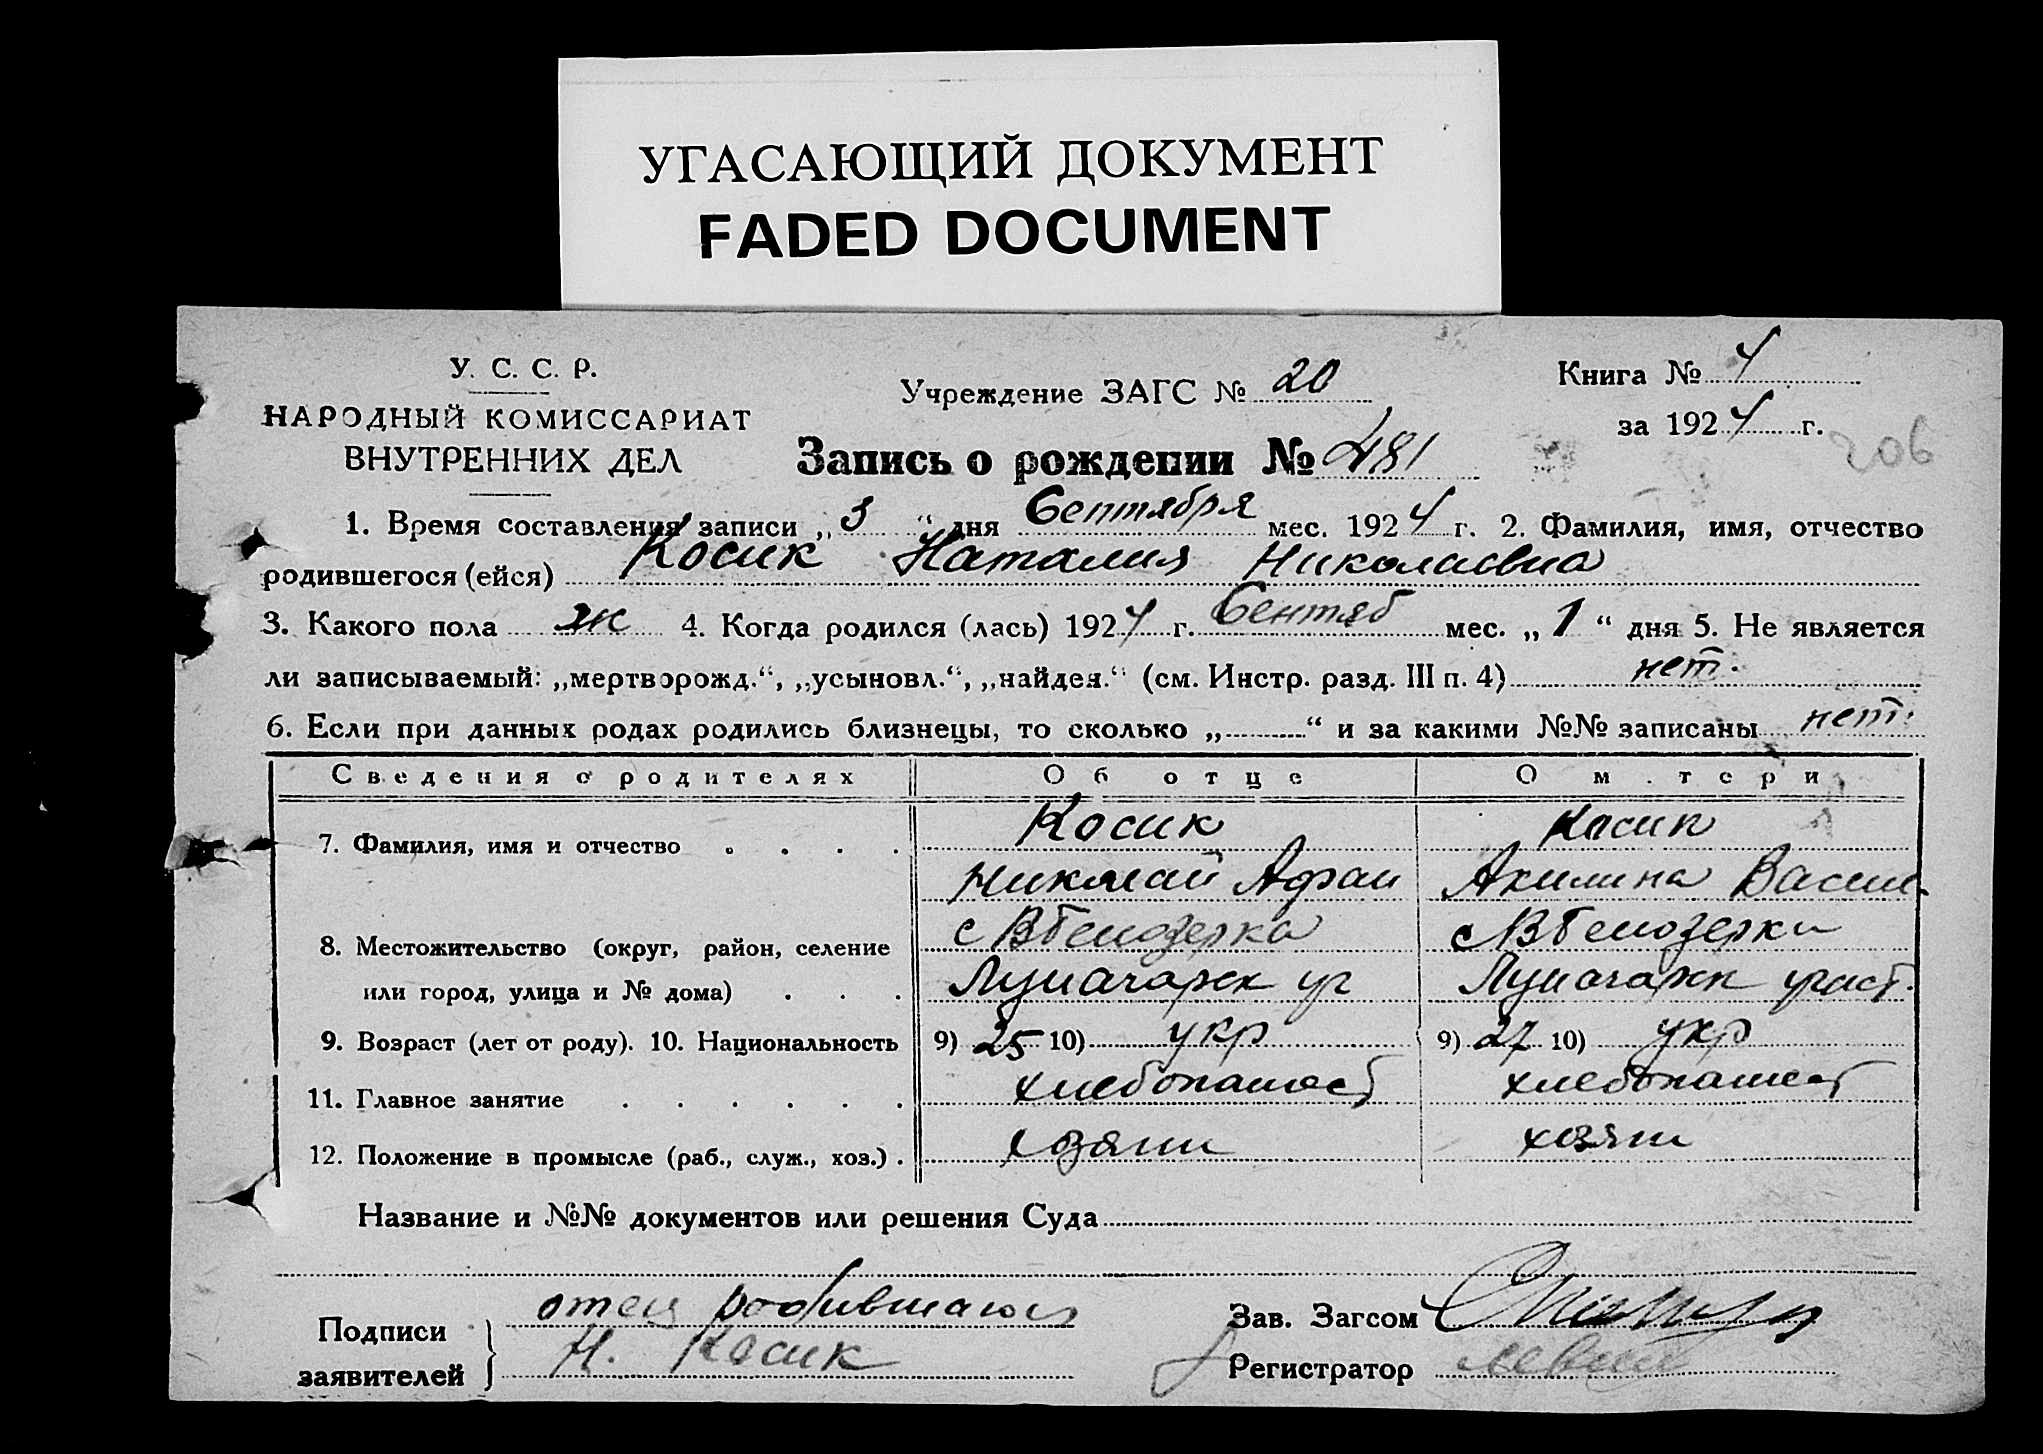 УГАСАЮЩИЙ ДОКУМЕНТ
FADED DOCUMENT
У. С. С. Р.
НАРОДНЫЙ КОМИССАРИАТ
ВНУТРЕННИХ ДЕЛ
Учреждение ЗАГС № 20
Книга № 4
за 1924 г.
206
Запись о рождении № 481
1. Время составления записи „3“ дня Сентября мес. 1924 г. 2. Фамилия, имя, отчество
родившегося (ейся) Косик Наталия Николаевна
3. Какого пола ж 4. Когда родился (лась) 1924 г. Сентяб мес. „1“ дня 5. Не является
ли записываемый: „мертворожд.“, „усыновл.“, „найден.“ (см. Инстр. разд. III п. 4) нет.
6. Если при данных родах родились близнецы, то сколько „..........“ и за какими №№ записаны нет.
Сведения о родителях Об отце О м.тери
7. Фамилия, имя и отчество . . . . Косик Косик
Николай Афан Акилина Васил.
с ВБелозерка с ВБелозерки
8. Местожительство (округ, район, селение
или город, улица и № дома) . . . Луначарск уч Луначарск участ.
9. Возраст (лет от роду). 10. Национальность 9) 25 10) укр 9) 27 10) укр
11. Главное занятие . . . . . . хлебопашест хлебопашест
12. Положение в промысле (раб., служ., хоз.) . хозяин хозяин
Название и №№ документов или решения Суда
Подписи
заявителей
отец родившагося
Н. Косик
Зав. Загсом
Регистратор